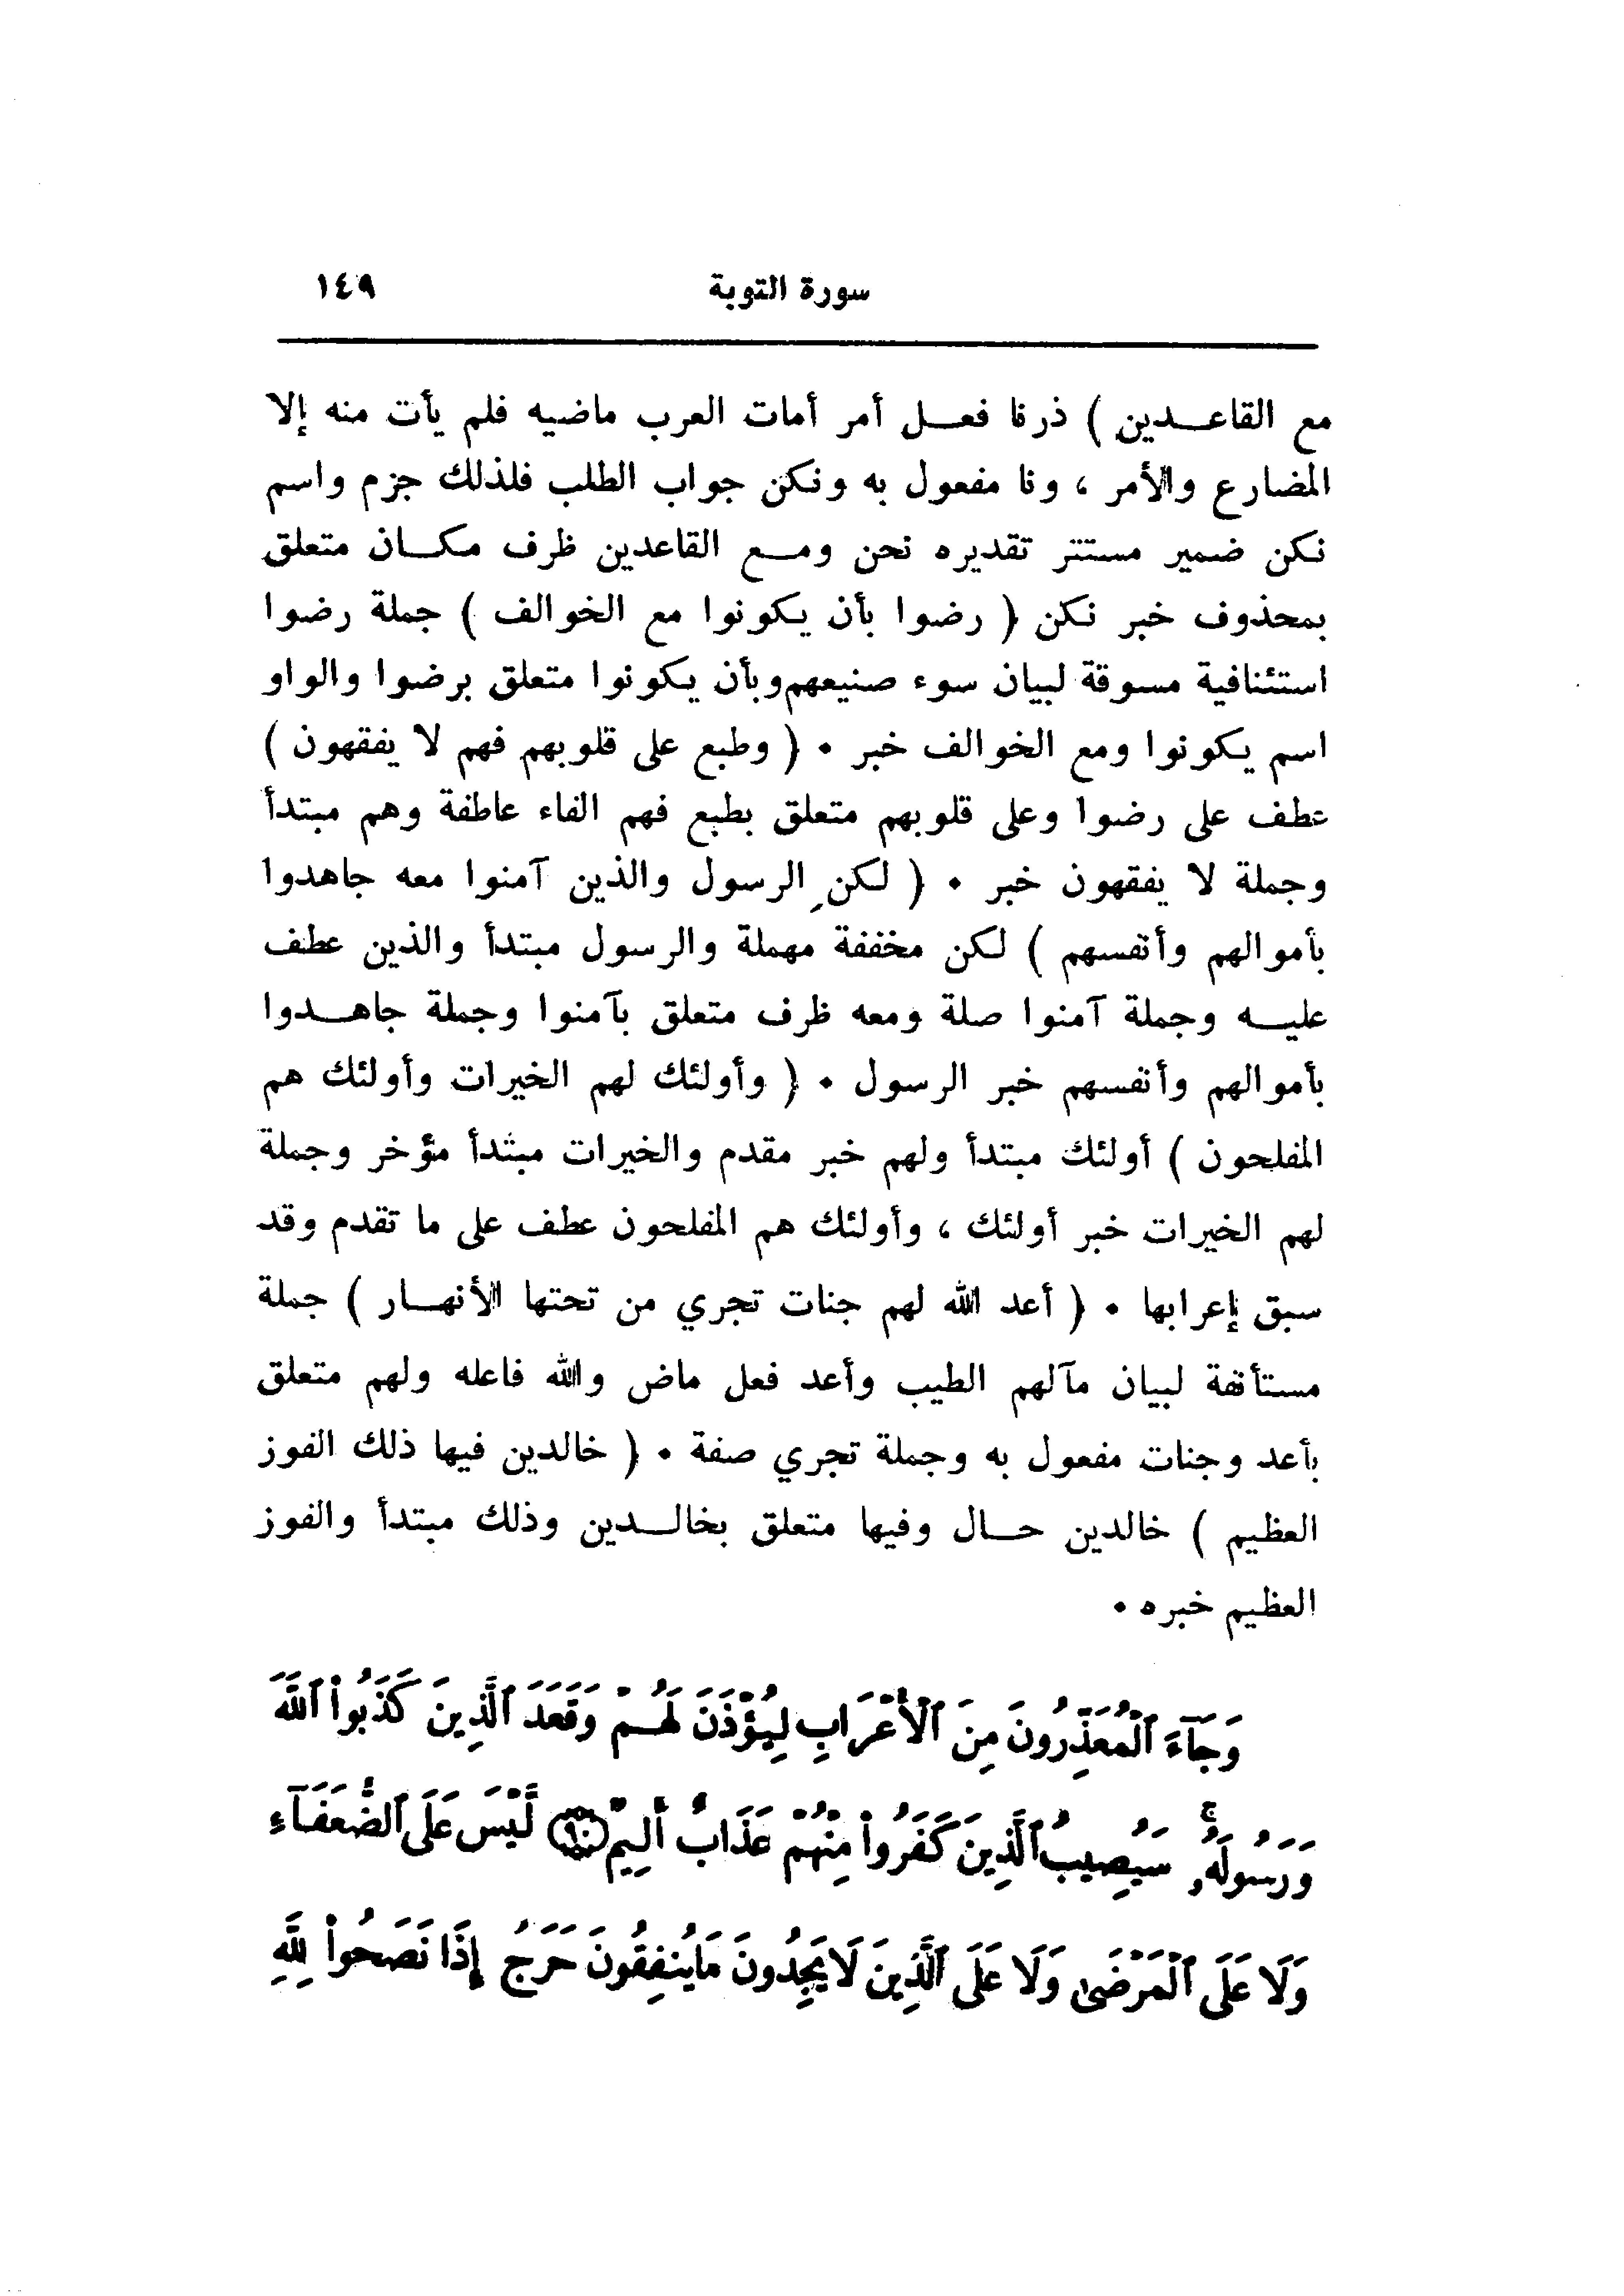 سورة التوبة ١٤٩
مع القاعـدين ) ذرنا فعـل أمر أمات العرب ماضيه فلم يأت منه إلا
المضارع والأمر ، ونا مفعول به ونكن جواب الطلب فلذلك جزم واسم
نكن ضمير مستتر تقديره نحن ومـع القاعدين ظرف مكـان متعلق
بمحذوف خبر نكن ( رضوا بأن يكونوا مع الخوالف ) جملة رضوا
استئنافية مسوقة لبيان سوء صنيعهم وبأن يكونوا متعلق برضوا والواو
اسم يكونوا ومع الخوالف خبر ٠ ( وطبع على قلوبهم فهم لا يفقهون )
عطف على رضوا وعلى قلوبهم متعلق بطبع فهم الفاء عاطفة وهم مبتدأ
وجملة لا يفقهون خبر ٠ ( لكنِ الرسول والذين آمنوا معه جاهدوا
بأموالهم وأنفسهم ) لكن مخففة مهملة والرسول مبتدأ والذين عطف
عليـه وجملة آمنوا صلة ومعه ظرف متعلق بآمنوا وجملة جاهـدوا
بأموالهم وأنفسهم خبر الرسول ٠ ( وأولئك لهم الخيرات وأولئك هم
المفلحون ) أولئك مبتدأ ولهم خبر مقدم والخيرات مبتدأ مؤخر وجملة
لهم الخيرات خبر أولئك ، وأولئك هم المفلحون عطف على ما تقدم وقد
سبق إعرابها ٠ ( أعد الله لهم جنات تجري من تحتها الأنهـار ) جملة
مستأنفة لبيان مآلهم الطيب وأعد فعل ماض والله فاعله ولهم متعلق
بأعد وجنات مفعول به وجملة تجري صفة ٠ ( خالدين فيها ذلك الفوز
العظيم ) خالدين حـال وفيها متعلق بخالـدين وذلك مبتدأ والفوز
العظيم خبره ٠
وَجَآءَ ٱلْمُعَذِّرُونَ مِنَ ٱلْأَعْرَابِ لِيُؤْذَنَ لَهُمْ وَقَعَدَ ٱلَّذِينَ كَذَبُواْ ٱللَّهَ
وَرَسُولَهُۥۚ سَيُصِيبُ ٱلَّذِينَ كَفَرُواْ مِنْهُمْ عَذَابٌ أَلِيمٌ ﴿٩٠﴾ لَّيْسَ عَلَى ٱلضُّعَفَآءِ
وَلَا عَلَى ٱلْمَرْضَىٰ وَلَا عَلَى ٱلَّذِينَ لَا يَجِدُونَ مَا يُنفِقُونَ حَرَجٌ إِذَا نَصَحُواْ لِلَّهِ